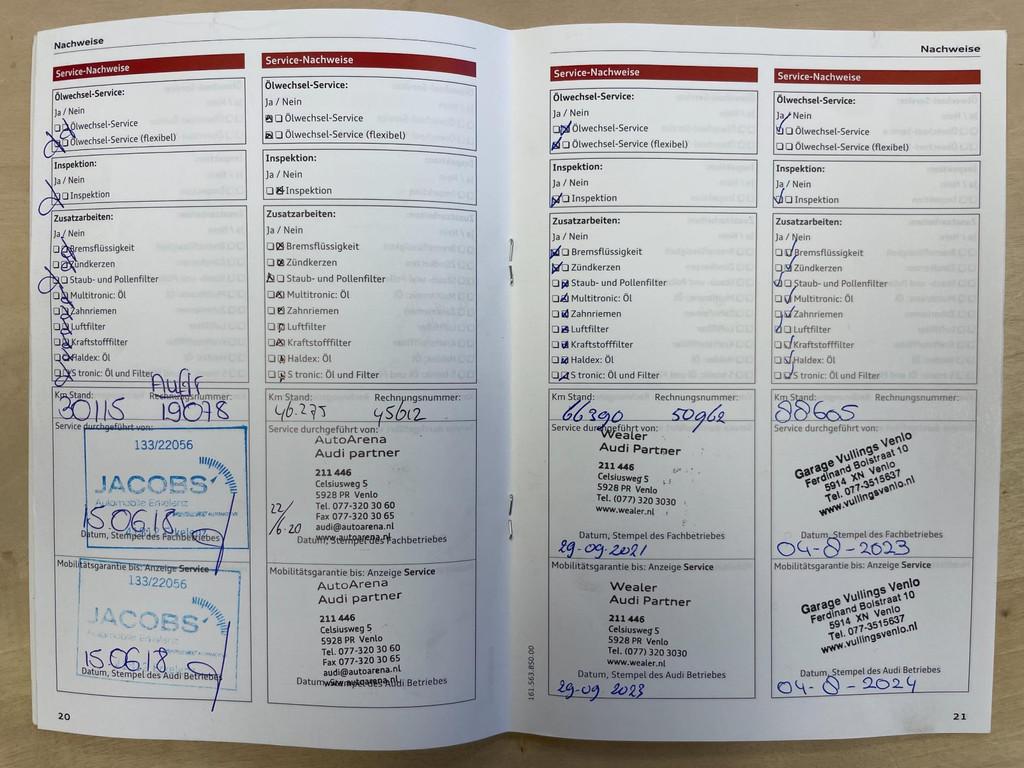 Nachweise
Service-Nachweise
Ölwechsel-Service:
Ja / Nein
Ölwechsel-Service
Ölwechsel-Service (flexibel)
Inspektion:
Ja / Nein
Inspektion
Zusatzarbeiten:
Ja / Nein
Bremsflüssigkeit
Zündkerzen
Staub- und Pollenfilter
Multitronic: Öl
Zahnriemen
Luftfilter
Kraftstofffilter
Haldex: Öl
S tronic: Öl und Filter
Auftr
Km Stand: Rechnungsnummer:
30115 19078
Service durchgeführt von:
133/22056
JACOBS
Automobile Erkelenz
15.06.18
Datum, Stempel des Fachbetriebes
Mobilitätsgarantie bis: Anzeige Service
133/22056
JACOBS
Automobile Erkelenz
15.06.18
Datum, Stempel des Audi Betriebes
20
Service-Nachweise
Ölwechsel-Service:
Ja / Nein
Ölwechsel-Service
Ölwechsel-Service (flexibel)
Inspektion:
Ja / Nein
Inspektion
Zusatzarbeiten:
Ja / Nein
Bremsflüssigkeit
Zündkerzen
Staub- und Pollenfilter
Multitronic: Öl
Zahnriemen
Luftfilter
Kraftstofffilter
Haldex: Öl
S tronic: Öl und Filter
Km Stand: Rechnungsnummer:
46.275 45612
Service durchgeführt von:
AutoArena
Audi partner
211 446
Celsiusweg 5
5928 PR Venlo
Tel. 077-320 30 60
Fax 077-320 30 65
audi@autoarena.nl
www.autoarena.nl
22/6-20
Datum, Stempel des Fachbetriebes
Mobilitätsgarantie bis: Anzeige Service
AutoArena
Audi partner
211 446
Celsiusweg 5
5928 PR Venlo
Tel. 077-320 30 60
Fax 077-320 30 65
audi@autoarena.nl
www.autoarena.nl
Datum, Stempel des Audi Betriebes
Nachweise
Service-Nachweise
Ölwechsel-Service:
Ja / Nein
Ölwechsel-Service
Ölwechsel-Service (flexibel)
Inspektion:
Ja / Nein
Inspektion
Zusatzarbeiten:
Ja / Nein
Bremsflüssigkeit
Zündkerzen
Staub- und Pollenfilter
Multitronic: Öl
Zahnriemen
Luftfilter
Kraftstofffilter
Haldex: Öl
S tronic: Öl und Filter
Km Stand: Rechnungsnummer:
66390 50962
Service durchgeführt von:
Wealer
Audi Partner
211 446
Celsiusweg 5
5928 PR Venlo
Tel. (077) 320 3030
www.wealer.nl
Datum, Stempel des Fachbetriebes
29-09-2021
Mobilitätsgarantie bis: Anzeige Service
Wealer
Audi Partner
211 446
Celsiusweg 5
5928 PR Venlo
Tel. (077) 320 3030
www.wealer.nl
Datum, Stempel des Audi Betriebes
29-09 2023
161.563.850.00
Service-Nachweise
Ölwechsel-Service:
Ja / Nein
Ölwechsel-Service
Ölwechsel-Service (flexibel)
Inspektion:
Ja / Nein
Inspektion
Zusatzarbeiten:
Ja / Nein
Bremsflüssigkeit
Zündkerzen
Staub- und Pollenfilter
Multitronic: Öl
Zahnriemen
Luftfilter
Kraftstofffilter
Haldex: Öl
S tronic: Öl und Filter
Km Stand: Rechnungsnummer:
88605
Service durchgeführt von:
Garage Vullings Venlo
Ferdinand Bolstraat 10
5914 XN Venlo
Tel. 077-3515637
www.vullingsvenlo.nl
Datum, Stempel des Fachbetriebes
04-8-2023
Mobilitätsgarantie bis: Anzeige Service
Garage Vullings Venlo
Ferdinand Bolstraat 10
5914 XN Venlo
Tel. 077-3515637
www.vullingsvenlo.nl
Datum, Stempel des Audi Betriebes
04-8-2024
21